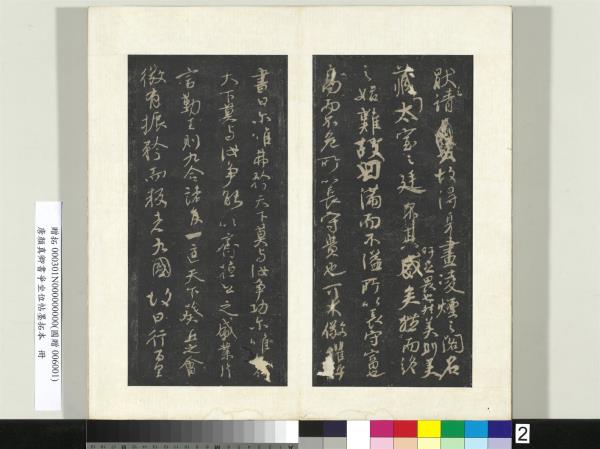 故得身畫淩煙之閣名
藏太室之廷
吁足畏也然美則美
矣而終
之始難故曰滿而不溢所以長守富
高而不危所以長守貴也可不儆懼乎
書曰尒唯弗矜天下莫与汝争功尒唯
天下莫与汝争能以齊桓公之盛業片
言勤王則九合諸侯一匡天下葵丘之會
微有振矜而叛者九國故曰行百里
贈拓 000301N000000000(國贈 006001)
唐顏真卿書爭坐位帖墨拓本 冊
2